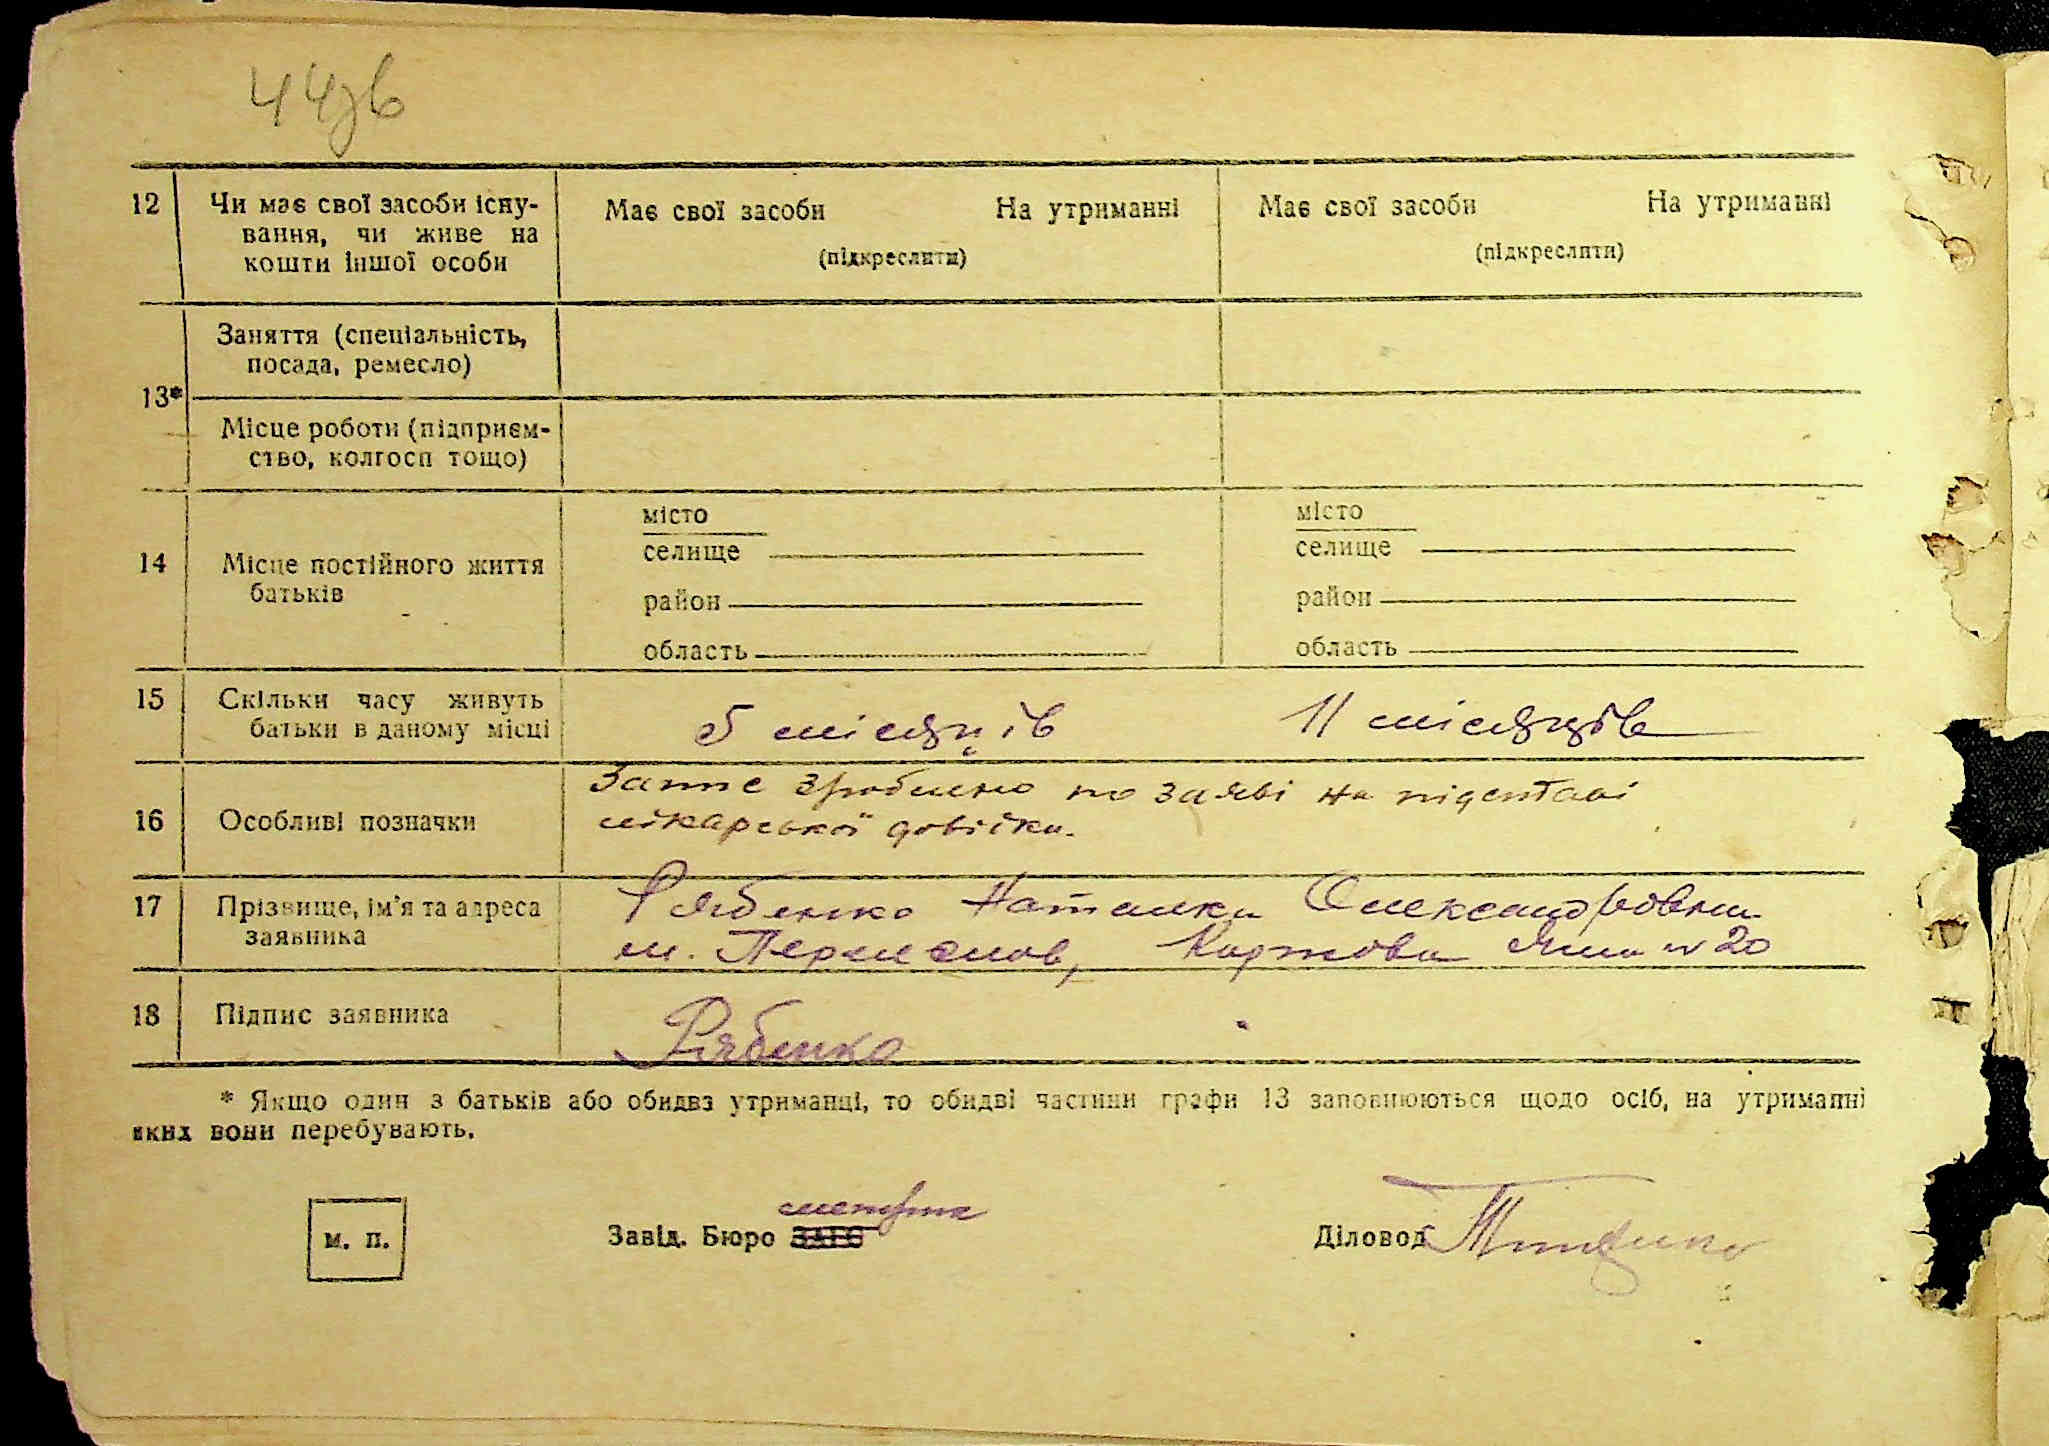 44зв
12 Чи має свої засоби існу-
вання, чи живе на
кошти іншої особи
Має свої засоби На утриманні
(підкреслити)
Має свої засоби На утриманні
(підкреслити)
13*
Заняття (спеціальність,
посада, ремесло)
Місце роботи (підприєм-
ство, колгосп тощо)
14 Місце постійного життя
батьків
місто
селище
район
область
місто
селище
район
область
15 Скільки часу живуть
батьки в даному місці
5 місяців
11 місяців
16 Особливі позначки
Запис зроблено по заяві на підставі
лікарської довідки.
17 Прізвище, ім'я та адреса
заявника
Рябенко Наталки Олександровни
м. N 20
18 Підпис заявника
Рябенко
* Якщо один з батьків або обидва утриманці, то обидві частини графи 13 заповнюються щодо осіб, на утриманні
яких вони перебувають.
м. п.
Завід. Бюро ЗАГС
Діловод